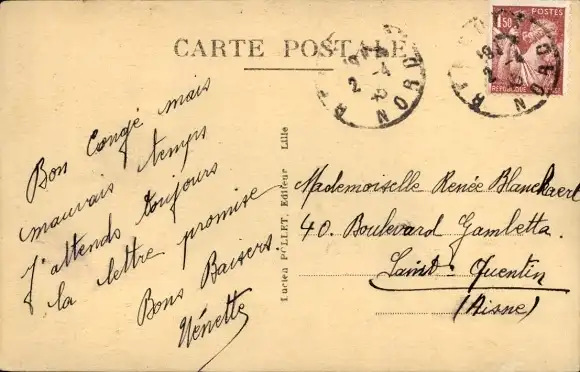 CARTE POSTALE
POSTES
1F50
RÉPUBLIQUE FRANÇAISE
NORD
NORD
Bon Congé mais
mauvais temps
J'attends toujours
la lettre promise
Bons Baisers.
Nénette
Lucien POLLET, Editeur Lille
Mademoiselle Renée Blanckaert
40. Boulevard Gambetta.
Saint-Quentin
(Aisne)